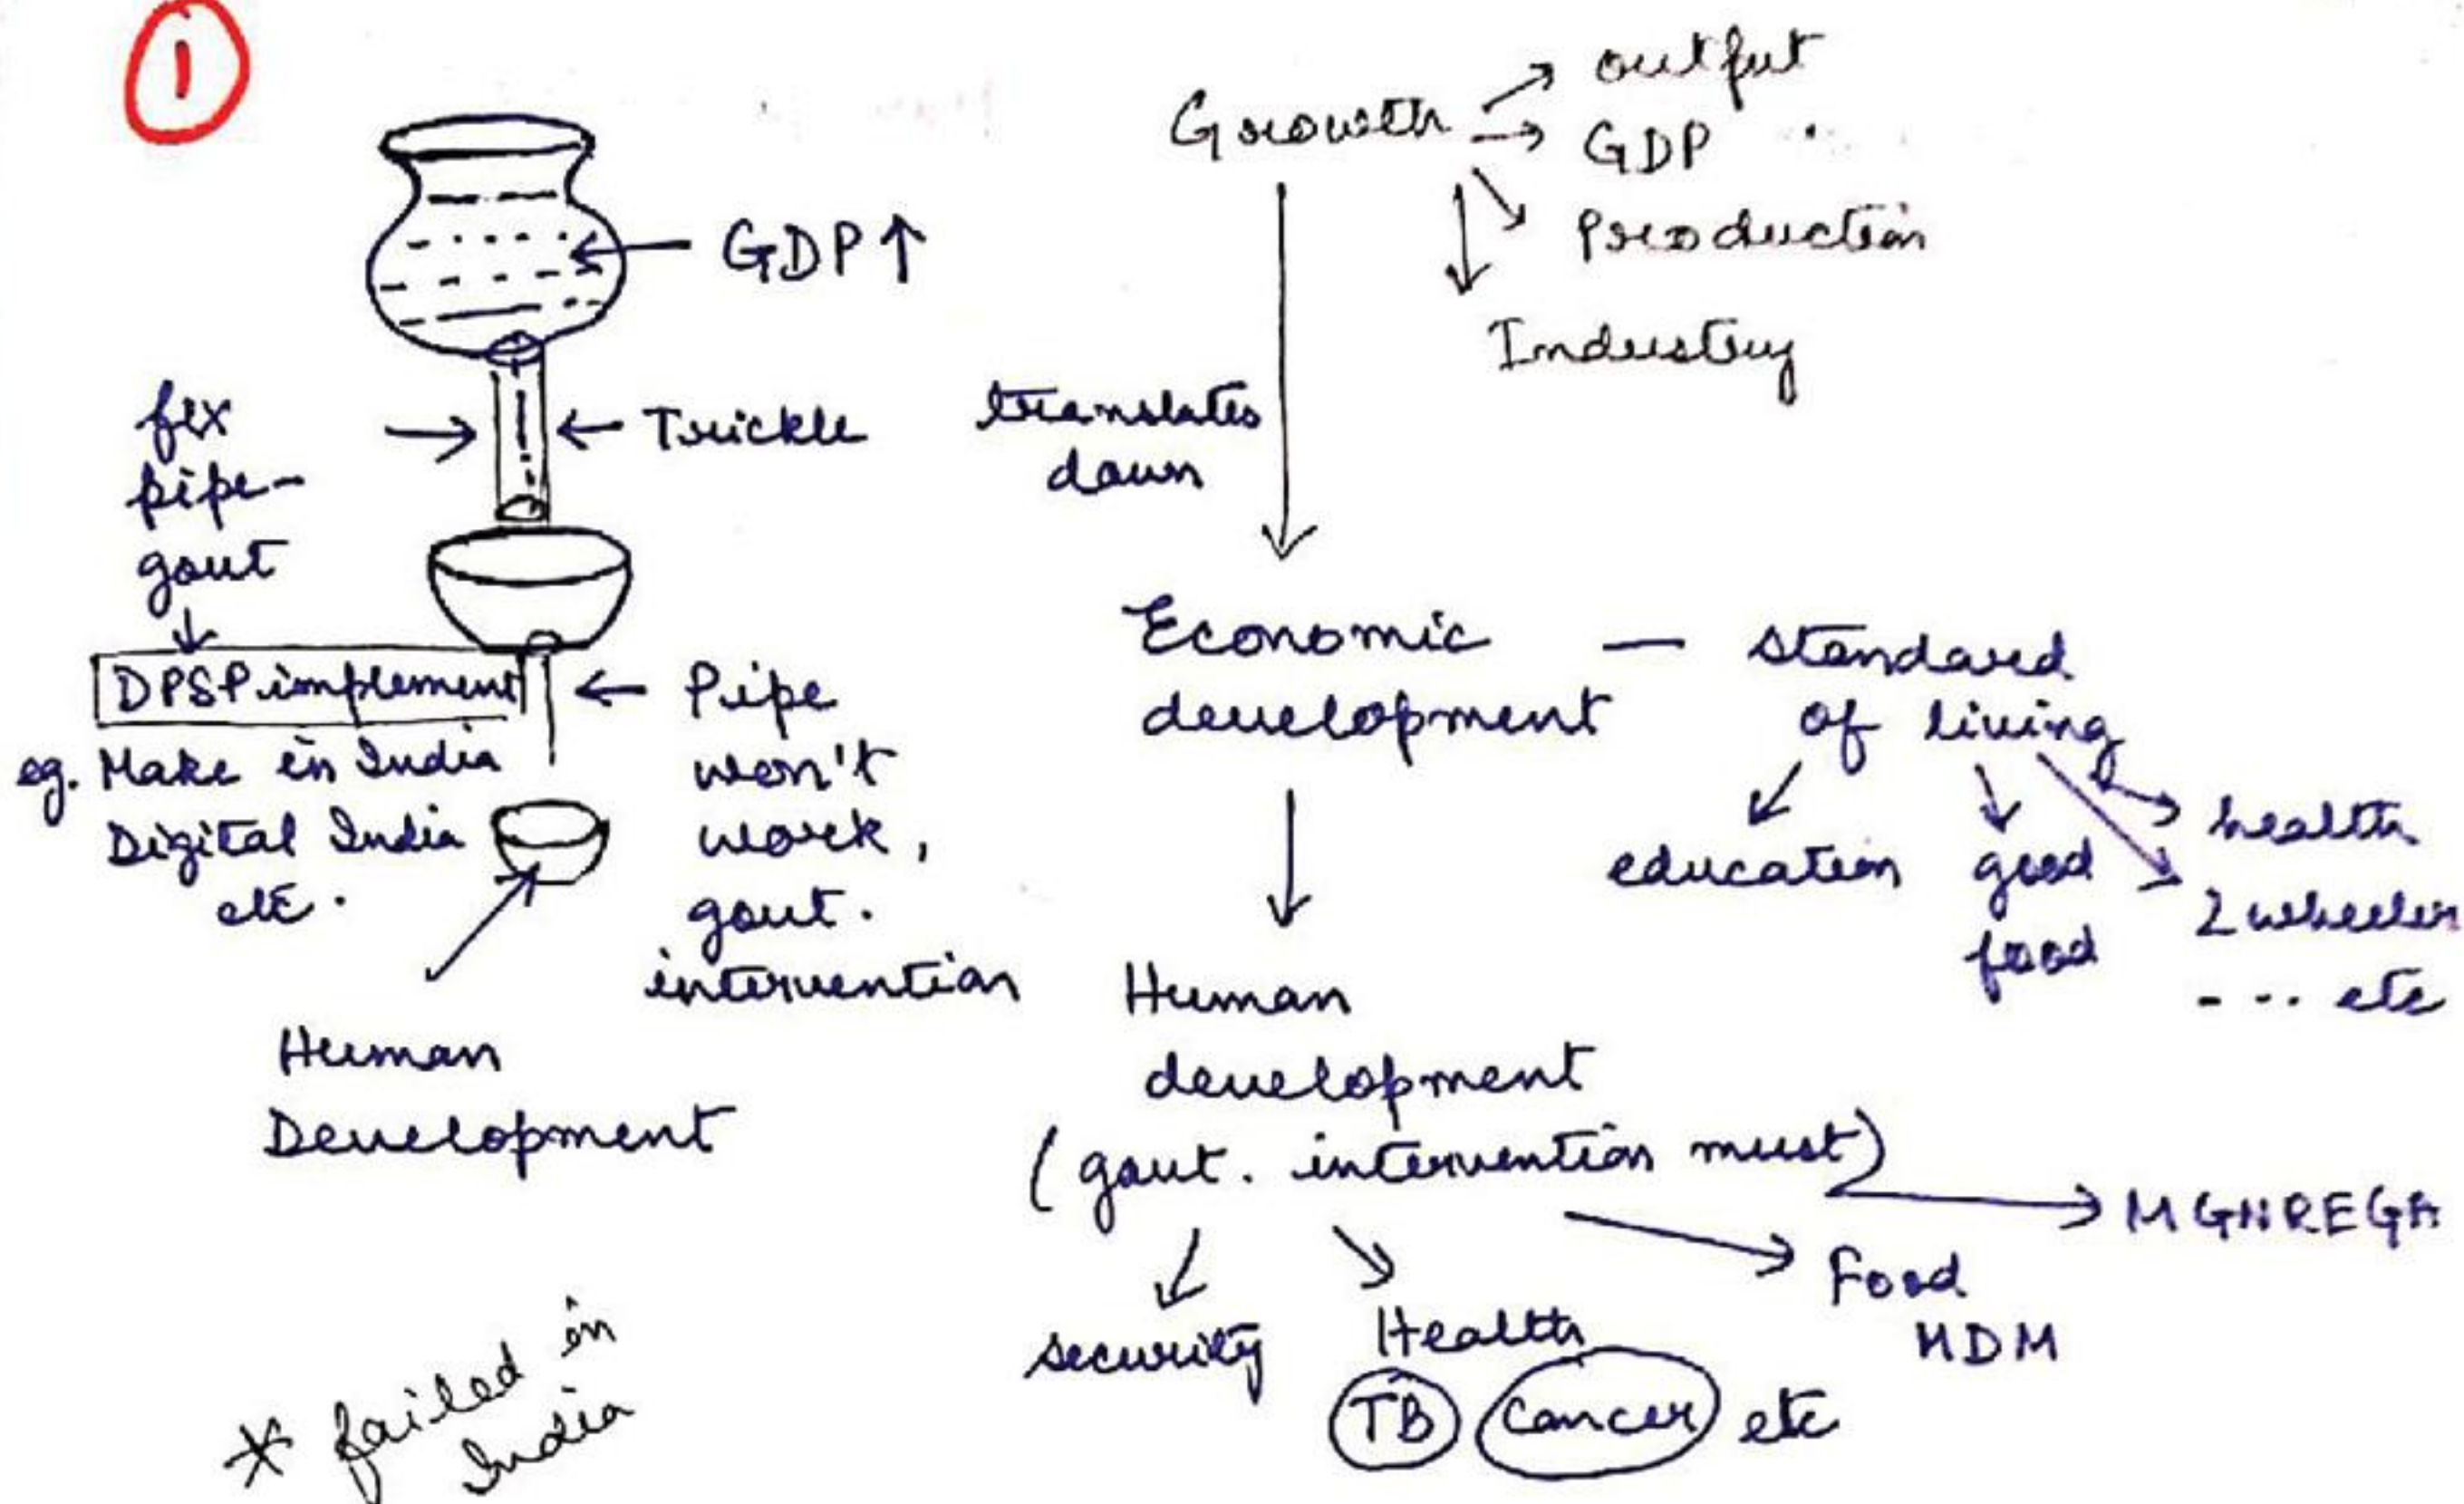 1
GDP↑
fix
pipe-
govt
Trickle
DPSP implement
eg. Make in India
Digital India
etc.
Pipe
won't
work,
govt.
intervention
Human
Development
* failed in
India
Growth
output
GDP
Production
Industry
translates
down
Economic
development
— standard
of living
education
good
food
health
2 wheeler
- - .. etc
Human
development
(govt. intervention must)
security
Health
TB Cancer etc
Food
MDM
MGNREGA